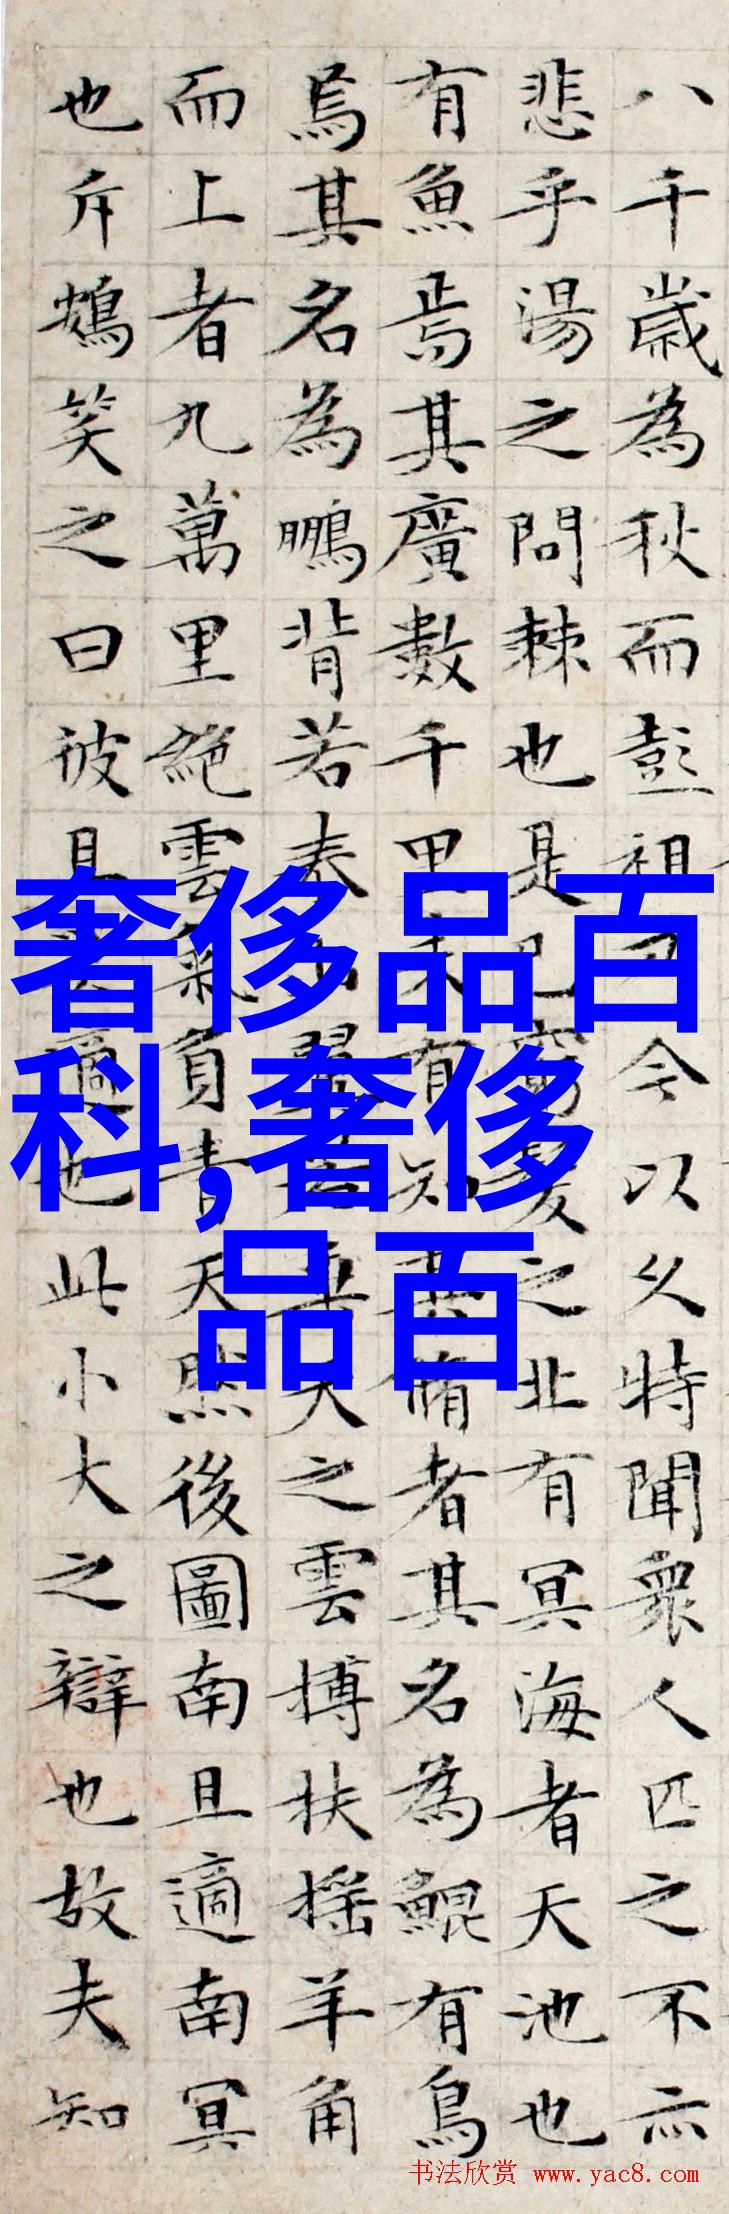 八千歲為秋而彭祖乃今以久特聞衆人匹之不亦
悲乎湯之問棘也是已窮髮之北有冥海者天池也
有魚焉其廣數千里未有知其脩者其名為鯤有鳥
焉其名為鵬背若泰垂天之雲搏扶搖羊角
而上者九萬里絕雲氣負青天然後圖南且適南冥
也斥鴳笑之曰彼且適也此小大之辯也故夫知
奢侈品百
科,奢侈
品百
书法欣赏 www.yac8.com